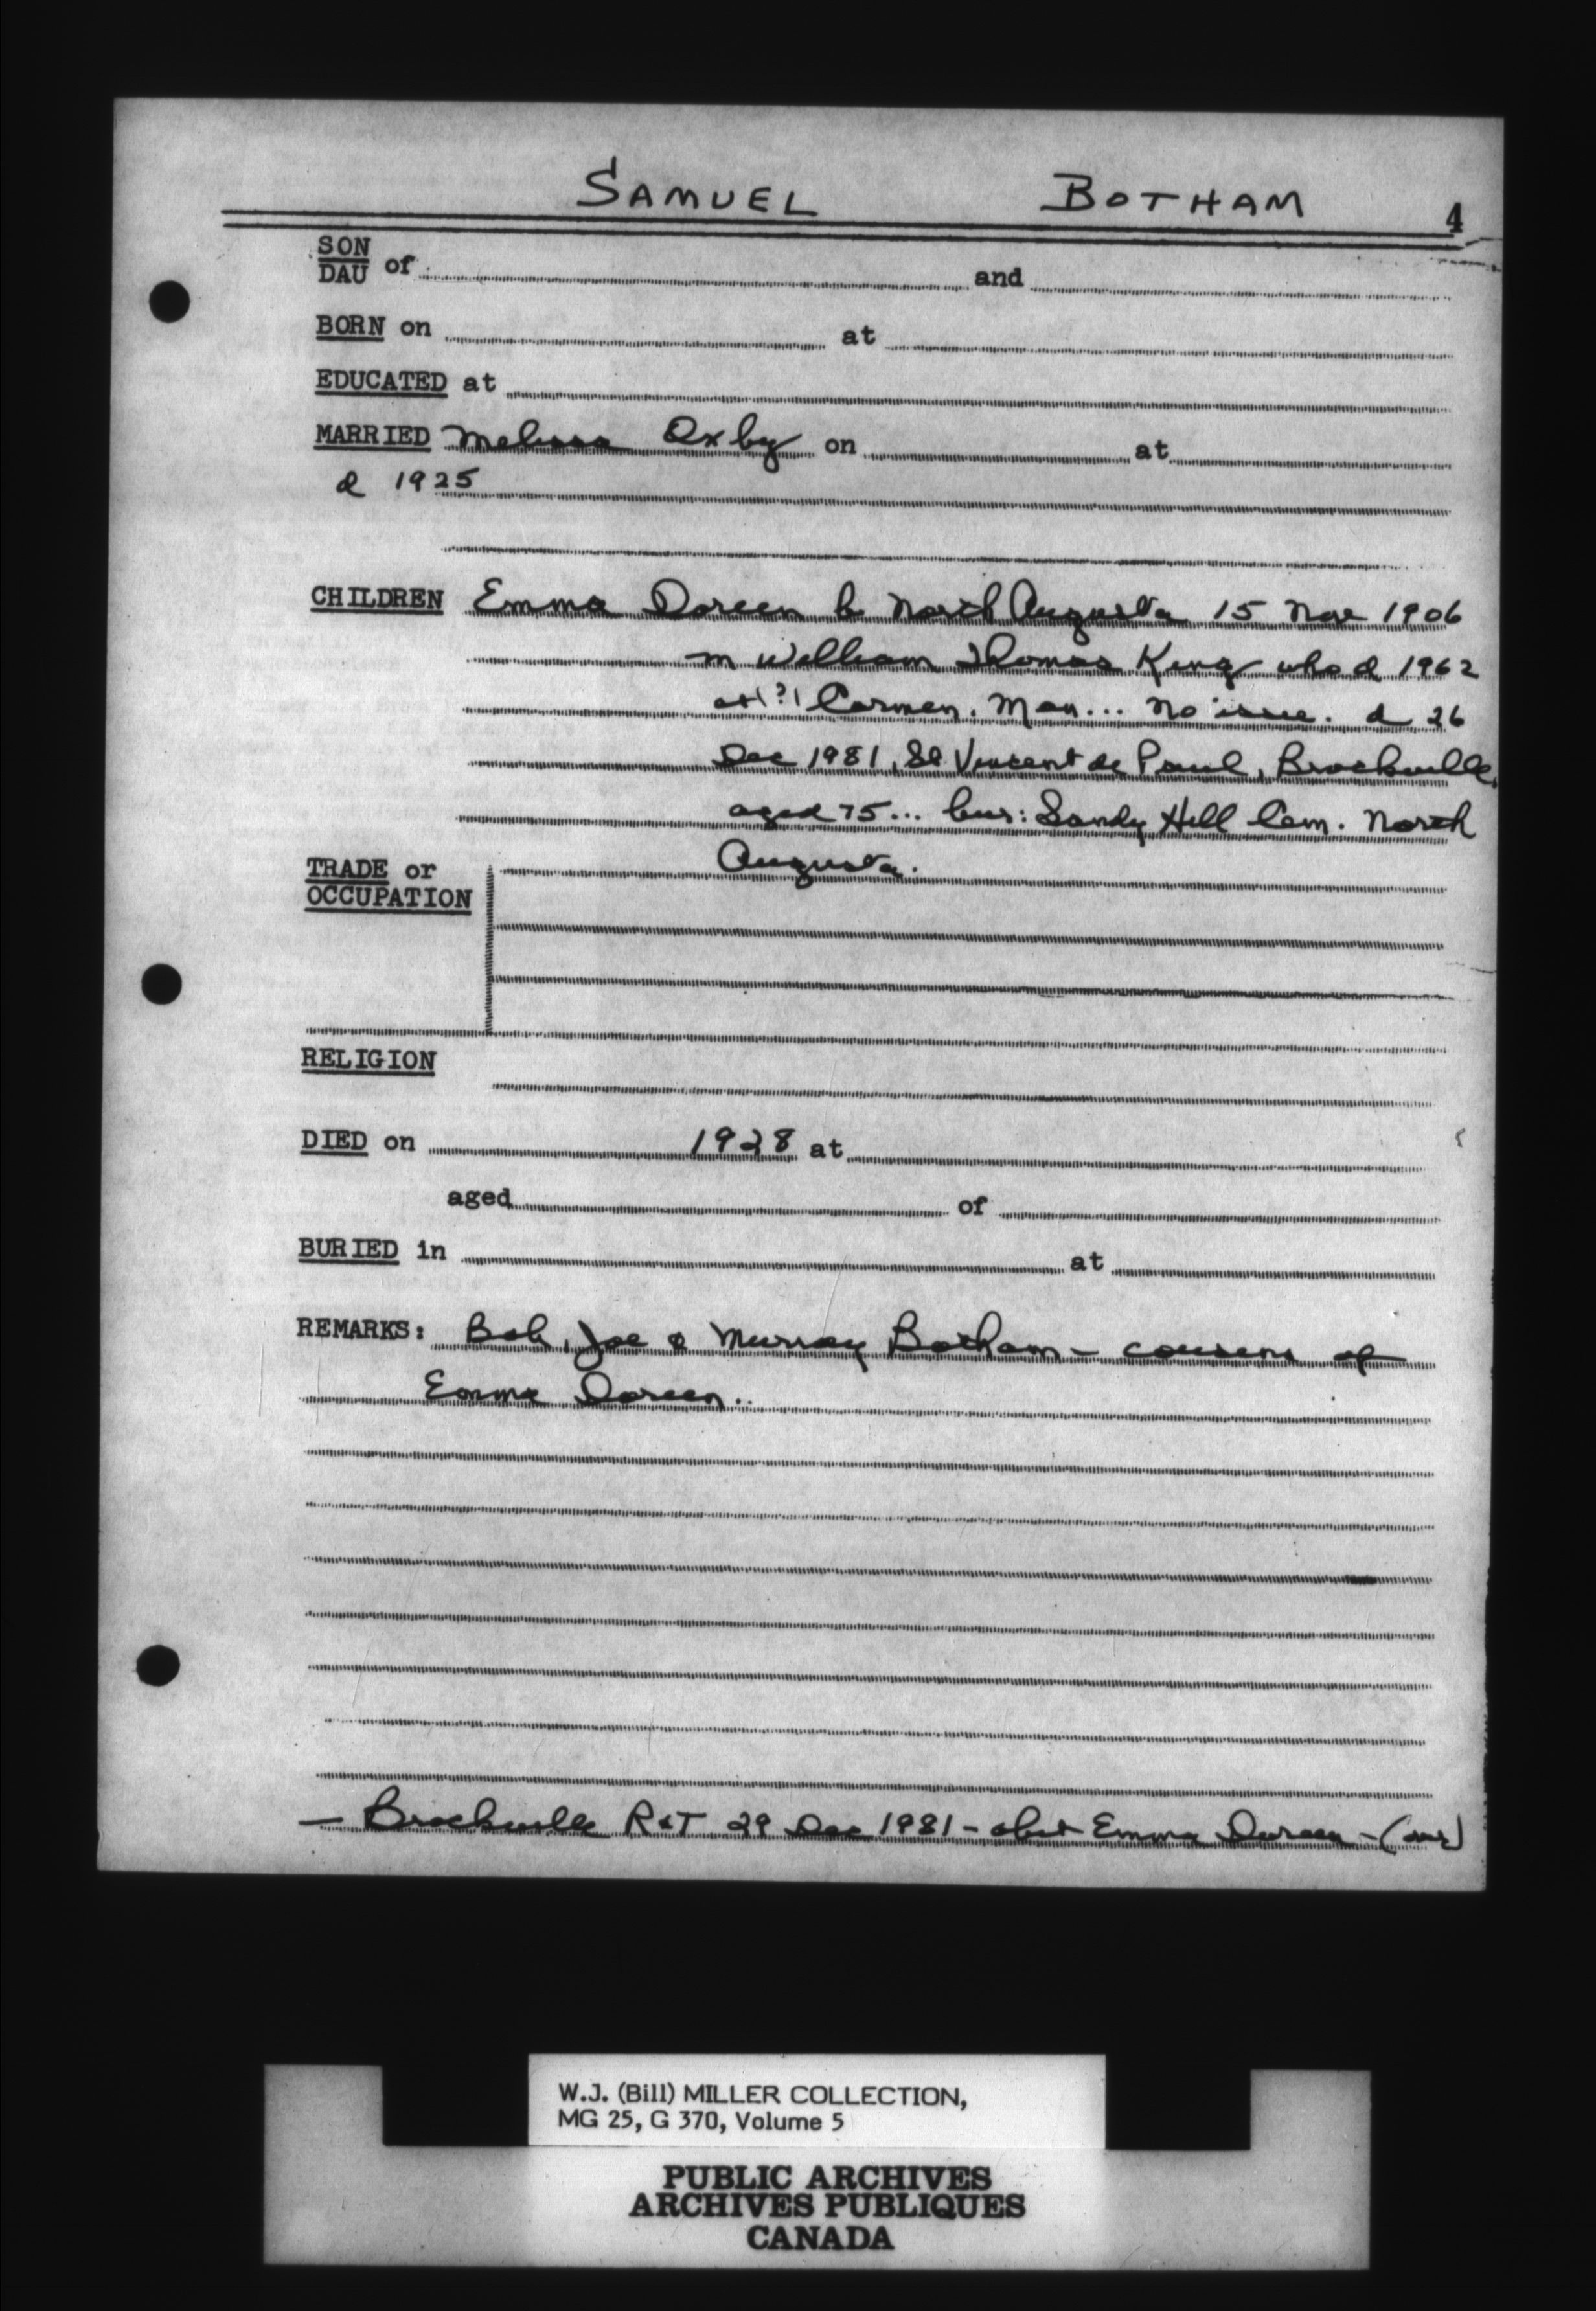 SAMUEL BOTHAM 4
SON
DAU of and
BORN on at
EDUCATED at
MARRIED Melissa Oxby on at
d 1925
CHILDREN Emma Doreen b North Augusta 15 Nov 1906
m William Thomas King who d 1962
at(?) Carmen, Man... no issue. d 26
Dec 1981, St Vincent de Paul, Brockville,
aged 75... bur: Sandy Hill Cem. North
Augusta.
TRADE or
OCCUPATION
RELIGION
DIED on 1928 at
aged of
BURIED in at
REMARKS: Bob, Joe & Murray Botham - cousins of
Emma Doreen..
— Brockville R&T 29 Dec 1981 - obit Emma Doreen -
W.J. (Bill) MILLER COLLECTION,
MG 25, G 370, Volume 5
PUBLIC ARCHIVES
ARCHIVES PUBLIQUES
CANADA